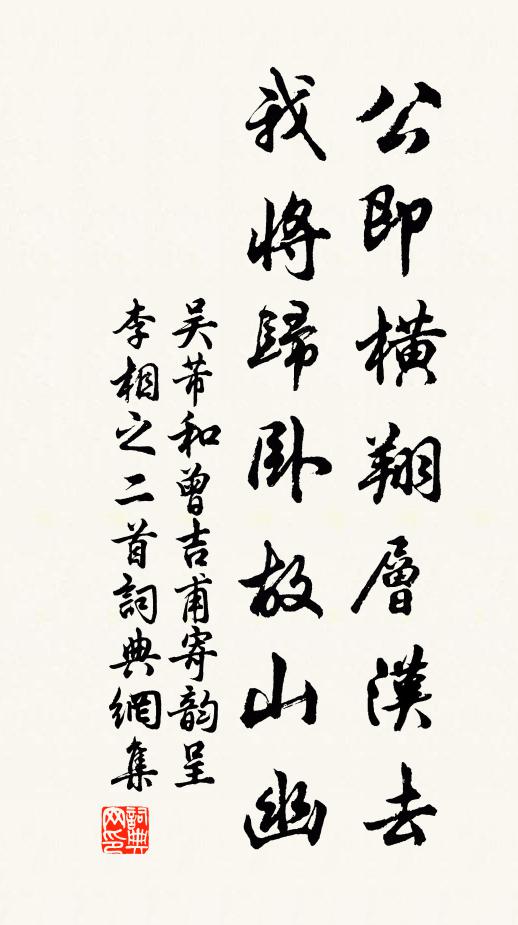 公即橫翔層漢去
我將歸臥故山幽
吴芾和曾吉甫寄韵呈
李相之二首詞典網集
詞典
网印